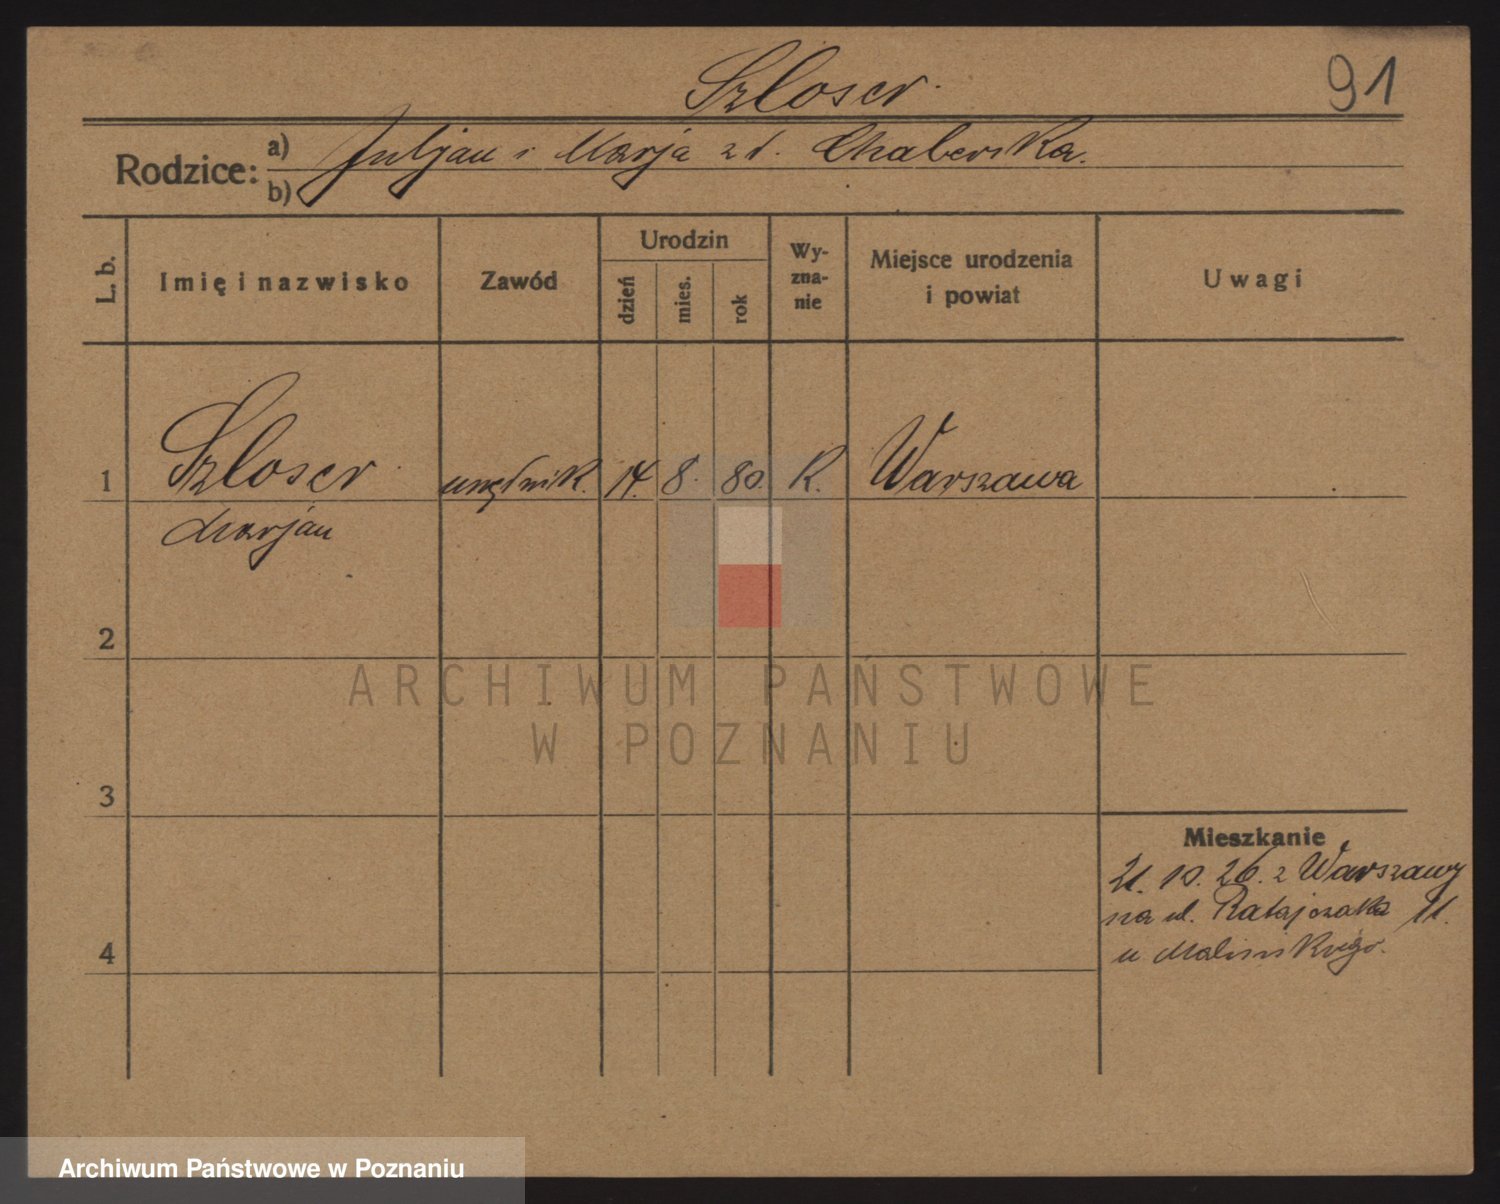 Szloser.
91
Rodzice:
a) Juljan i Marja z d. Chaberska.
b)
L. b.
Imię i nazwisko
Zawód
Urodzin
dzień
mies.
rok
Wy-
zna-
nie
Miejsce urodzenia
i powiat
Uwagi
1 Szloser urzędnik. 14. 8. 80. R. Warszawa
Marjan
2
3
4
Mieszkanie
21. 10. 26. z Warszawy
na ul. Ratajczaka 11.
u Malinskiego.
ARCHIWUM PAŃSTWOWE
W POZNANIU
Archiwum Państwowe w Poznaniu